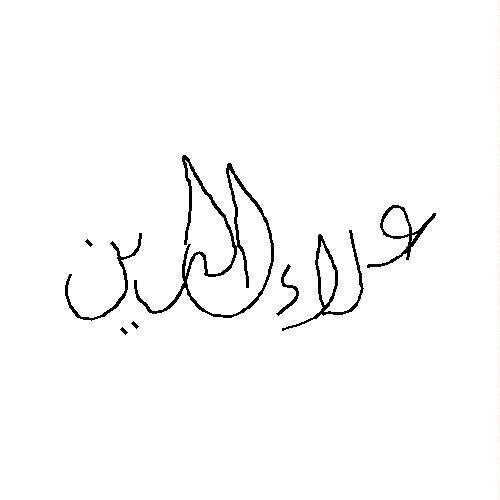 علاء الدين